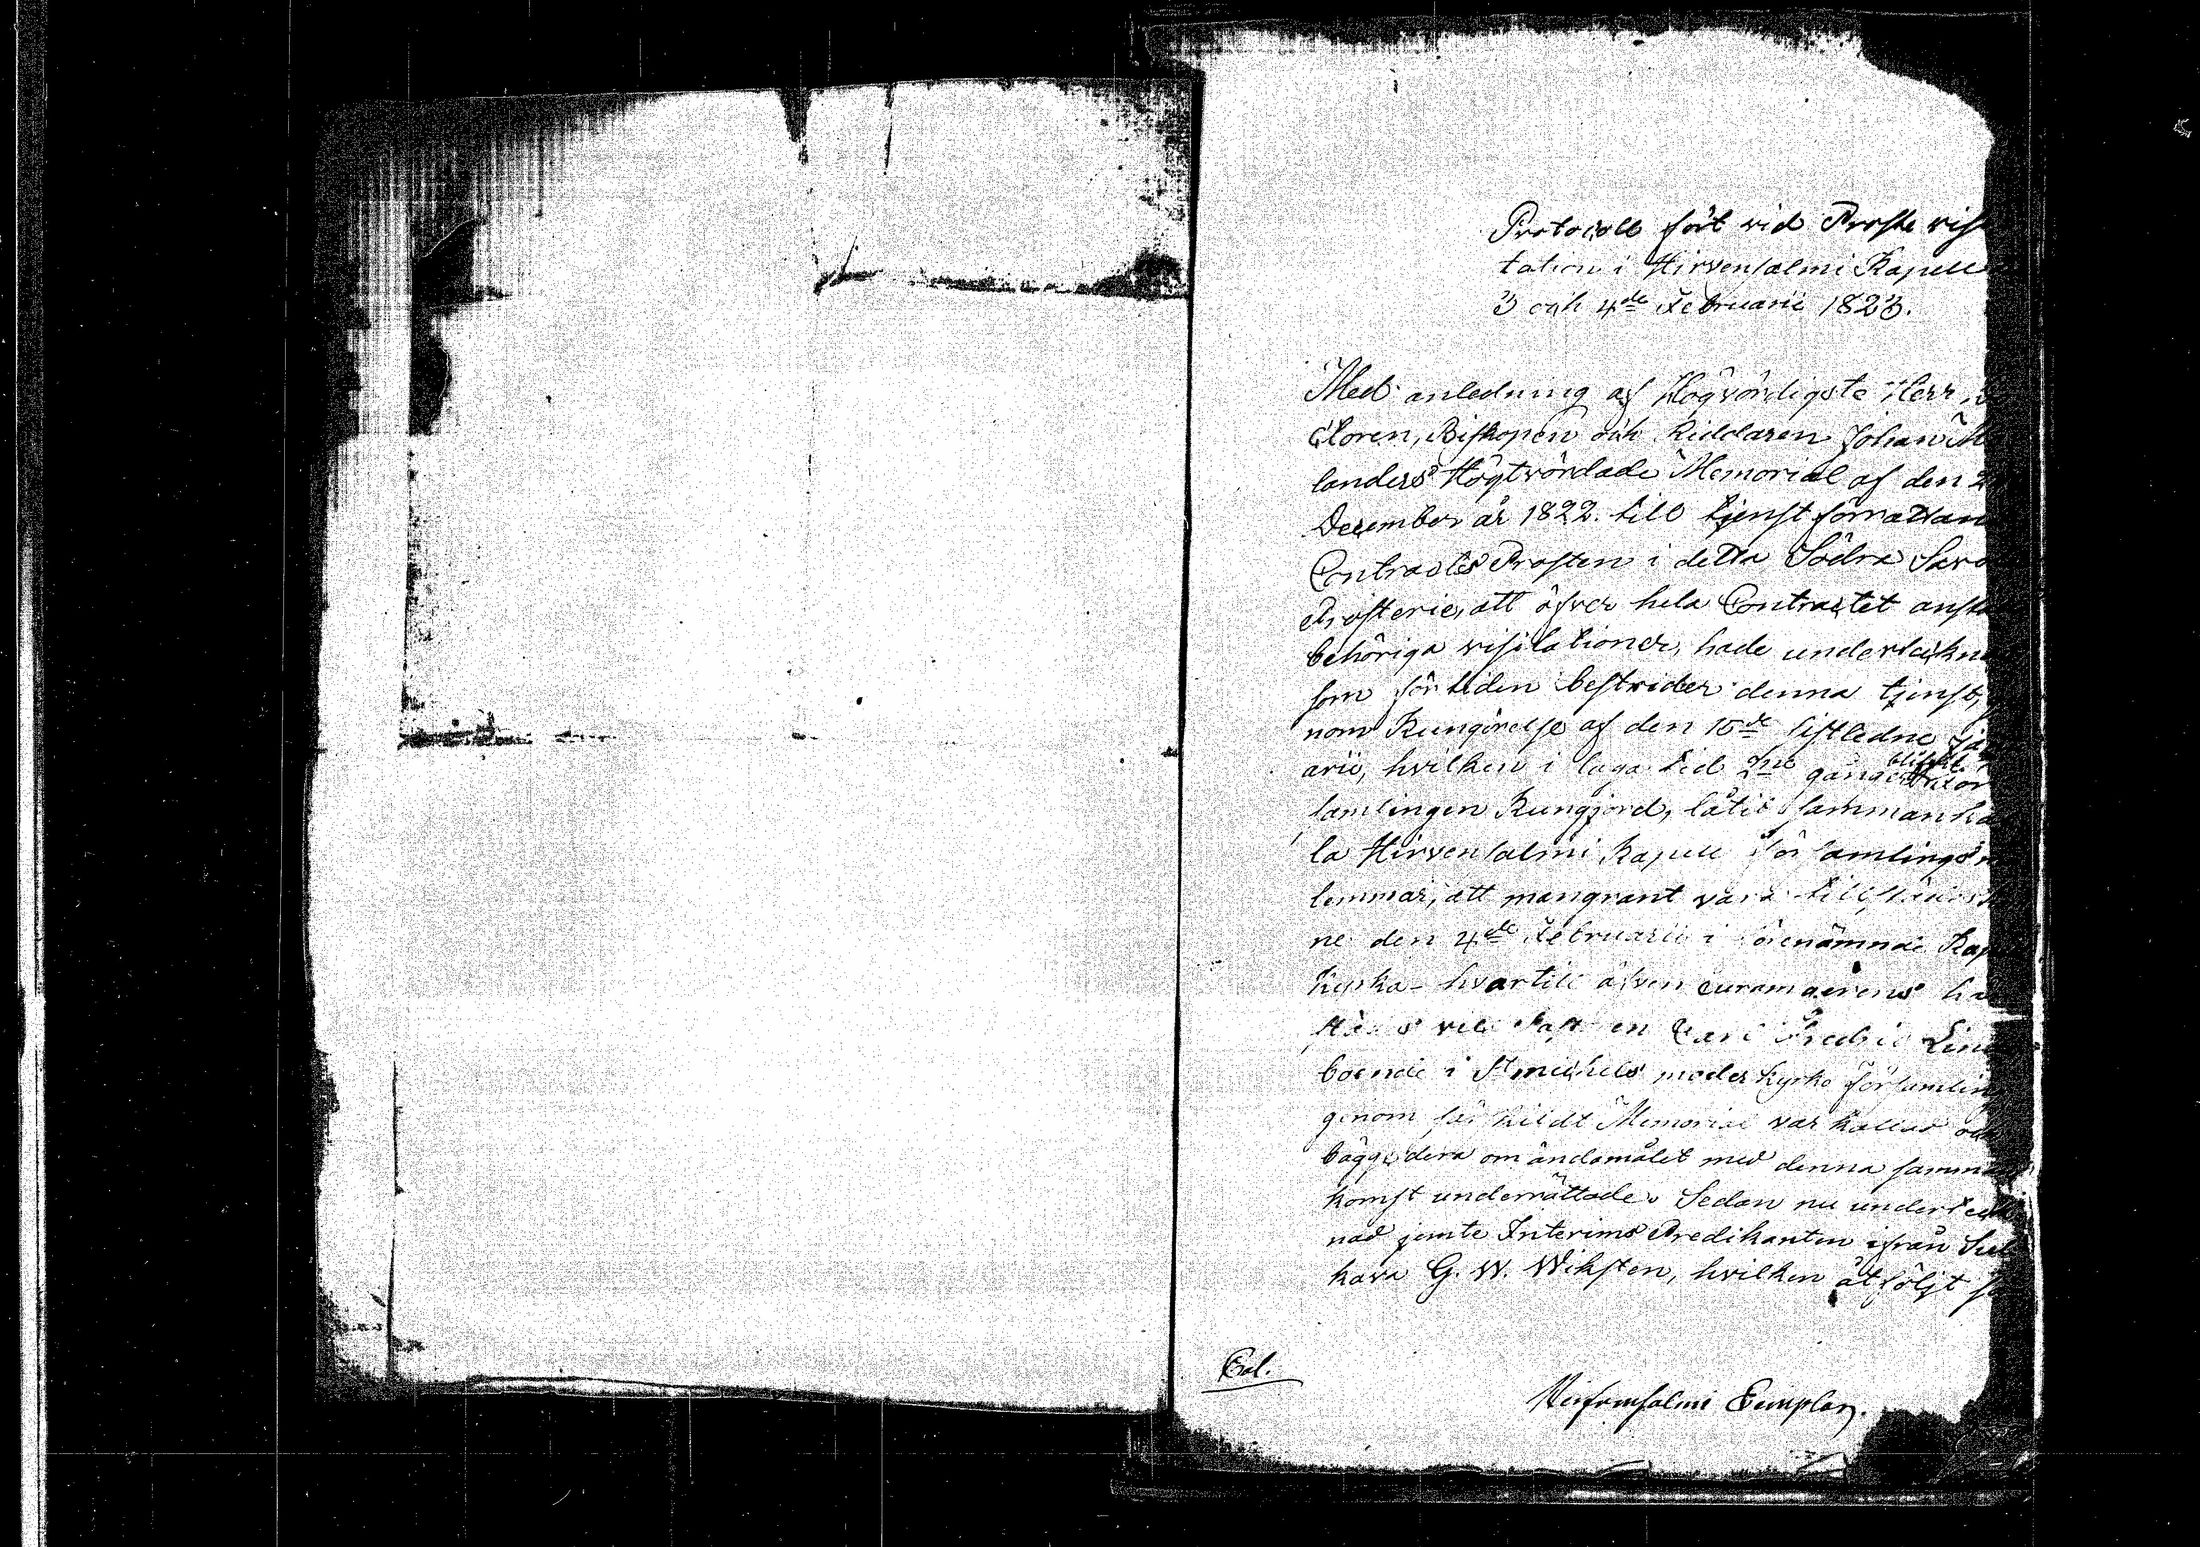 Protocoll fört vid Proste visi
tation i Hirvensalmi Kapell
3 och 4de Februarii 1823.
Med anledning af Högvördigste Herr
ctoren, Biskopen och Riddaren Johan M
landers Högtvördade Memorial af den 2
December år 1822. till tjenstförrättan
Contracts Prosten i detta Södra Savo
Prosterie, att öfver hela Contractet anstä
behöriga visitationer, hade underteckna
som för tiden bestrider denna tjenst,
nom Kungörelse af den 15de sistledne Janu
arii, hvilken i laga tid 2ne gånger blifvit
samlingen Kungjord, låtit sammankal
la Hirvensalmi Kapell församlings
lemmar, att mangrant vara tillstädes
ne den 4de Februarii i förenämnde Kap
kyrka hvartill äfven
Carl Fredric Lind
boende i St michels moderkyrko församling
genom särskildt Memorial var kallad och
bägge dera om ändamålet med denna samman
komst underrättade. Sedan nu underteck
nad jemte Interims Predikanten ifrån Sul
kava G. W. Wiksten, hvilken åtföljt
Col.
Hirfvensalmi Exemplar.